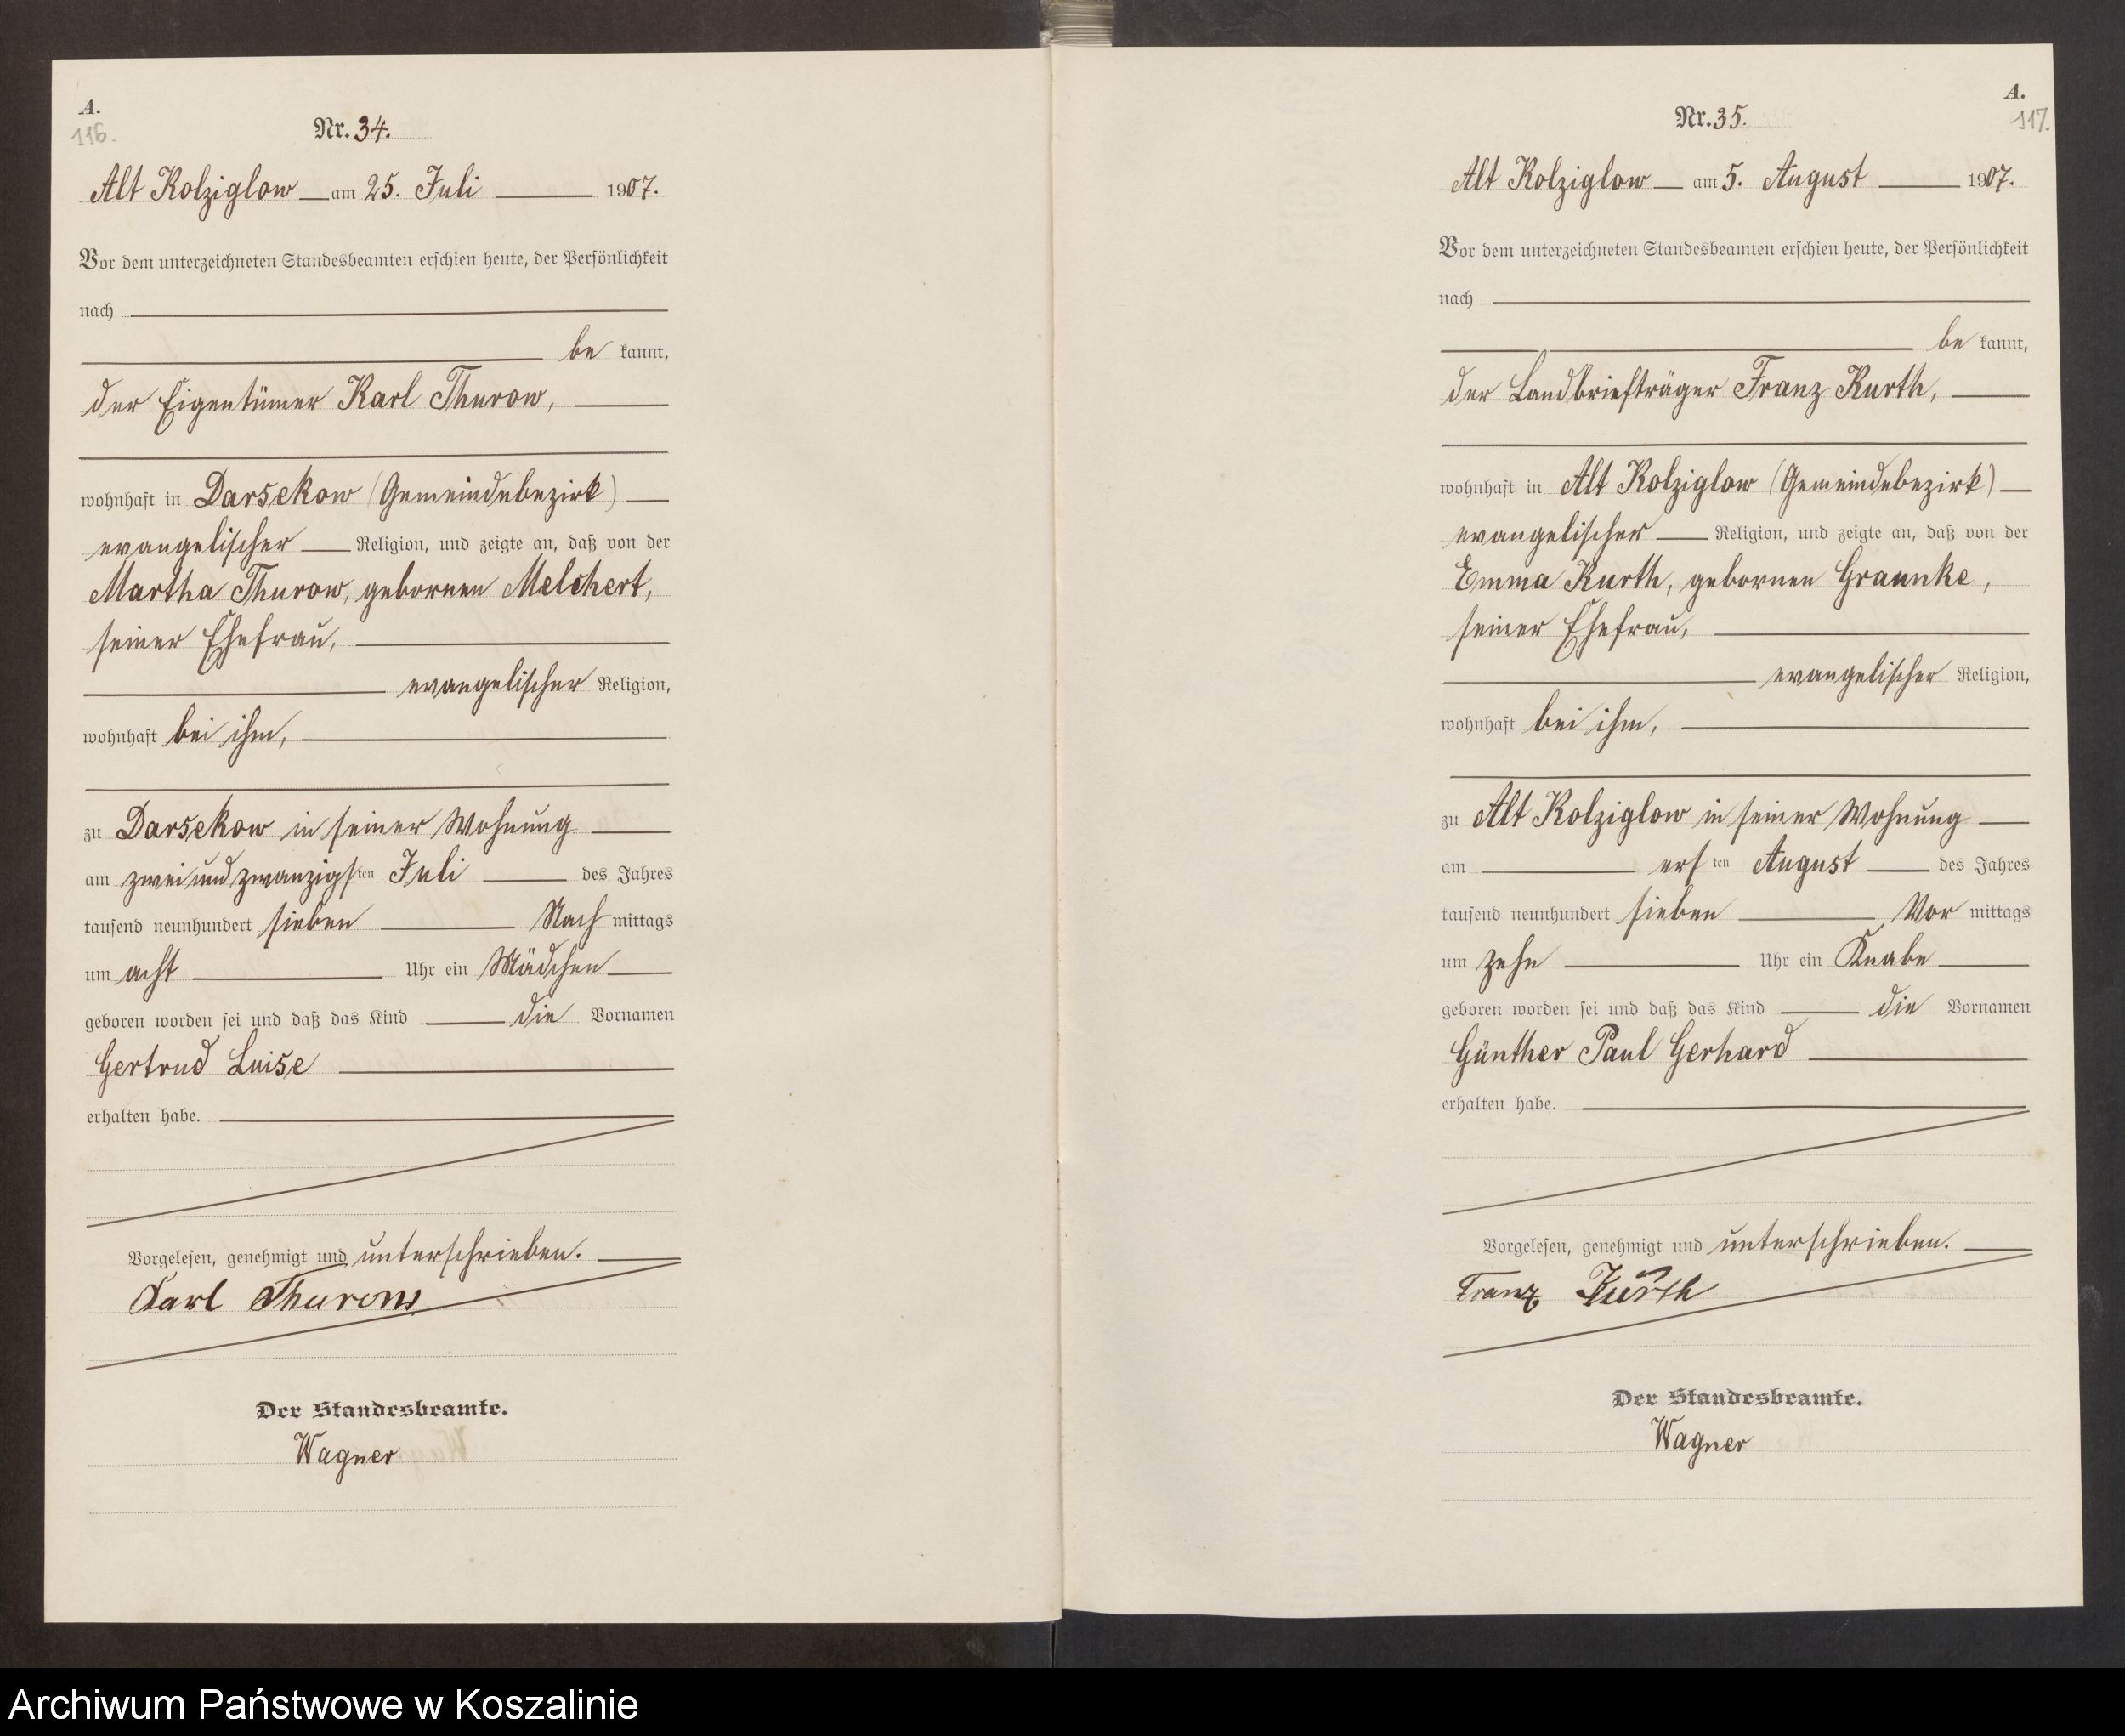 A.
116.
Nr. 34.
Alt Kolziglow am 25. Juli 1907.
Vor dem unterzeichneten Standesbeamten erschien heute, der Persönlichkeit
nach
be kannt,
der Eigentümer Karl Thurow,
wohnhaft in Darsekow (Gemeindebezirk)
evangelischer Religion, und zeigte an, daß von der
Martha Thurow, gebornen Melchert,
seiner Ehefrau,
evangelischer Religion,
wohnhaft bei ihm,
zu Darsekow in seiner Wohnung
am zweiundzwanzigsten Juli des Jahres
tausend neunhundert sieben Nach mittags
um acht Uhr ein Mädchen
geboren worden sei und daß das Kind die Vornamen
Gertrud Luise
erhalten habe.
Vorgelesen, genehmigt und unterschrieben.
Karl Thurow
Der Standesbeamte.
Wagner
A.
117.
Nr. 35.
Alt Kolziglow am 5. August 1907.
Vor dem unterzeichneten Standesbeamten erschien heute, der Persönlichkeit
nach
be kannt,
der Landbriefträger Franz Kurth,
wohnhaft in Alt Kolziglow (Gemeindebezirk)
evangelischer Religion, und zeigte an, daß von der
Emma Kurth, gebornen Graunke,
seiner Ehefrau,
evangelischer Religion,
wohnhaft bei ihm,
zu Alt Kolziglow in seiner Wohnung
am ersten August des Jahres
tausend neunhundert sieben Vor mittags
um zehn Uhr ein Knabe
geboren worden sei und daß das Kind die Vornamen
Günther Paul Gerhard
erhalten habe.
Vorgelesen, genehmigt und unterschrieben.
Franz Kurth
Der Standesbeamte.
Wagner
Archiwum Państwowe w Koszalinie